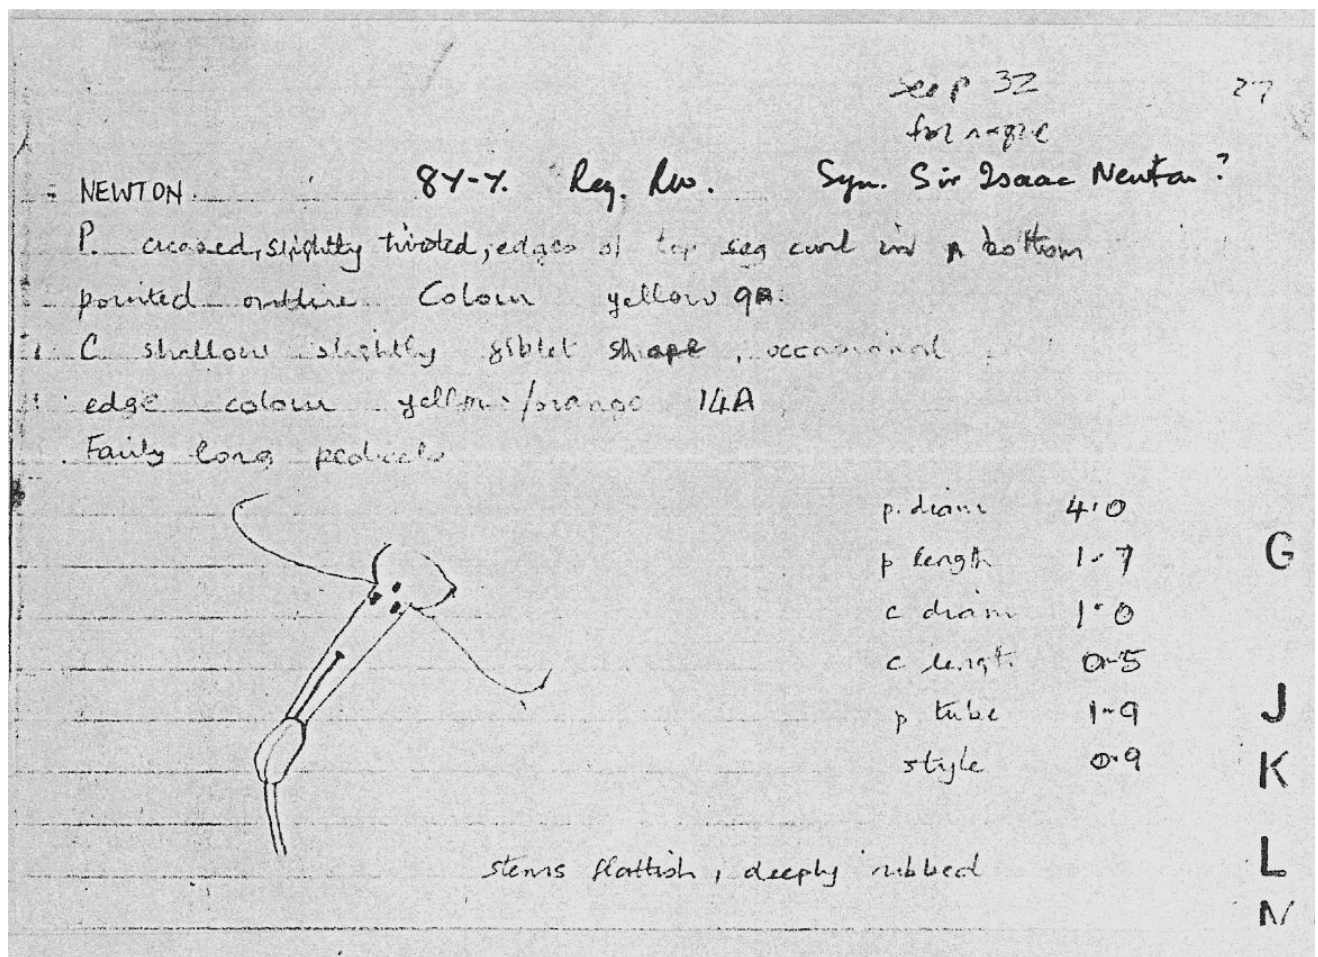 see p 32 27
for
NEWTON. 8Y-Y. Reg. Syn. Sir Isaac Newton?
P. creased, slightly twisted, edges of top seg curl in & bottom
pointed outline Colour yellow 9A.
C shallow slightly giblet shape, occasional
edge colour yellow/orange 14A
Fairly long pedicels
p. diam 4.0
p length 1.7 G
c diam 1.0
c length 0.5
p tube 1.9 J
style 0.9 K
stems flattish, deeply ribbed L
N